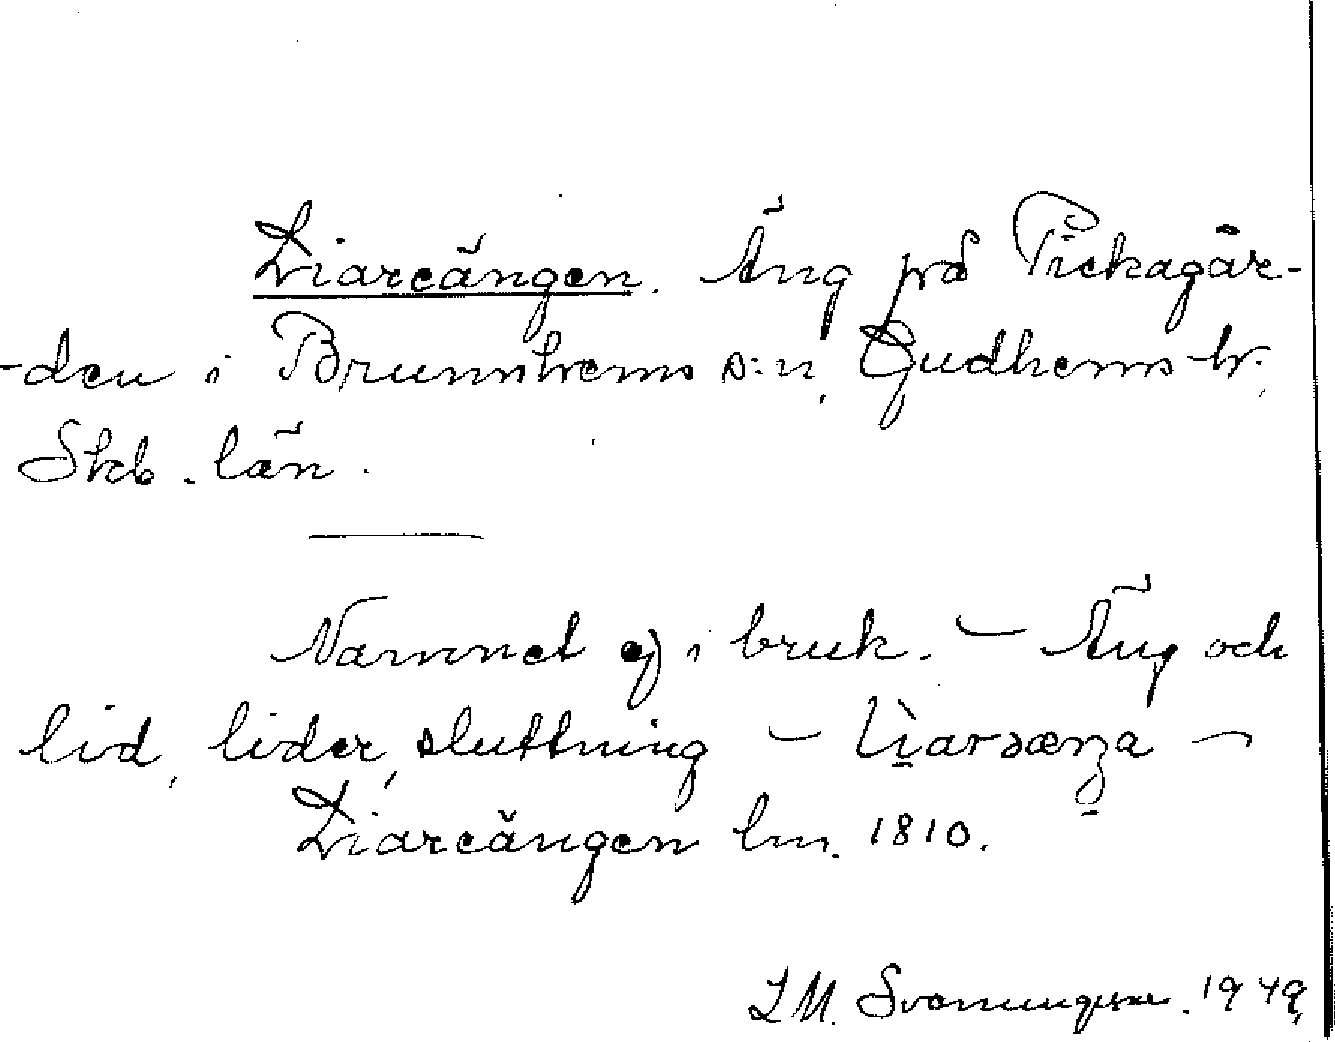 Liareängen. Äng på Pickagår-
-den i Brunnhems s:n, Gudhems hr.,
Skb. län.
Namnet ej i bruk. – Äng och
lid, lider, sluttning –
Liareängen lm. 1810.
L M. Svenungsson. 1949